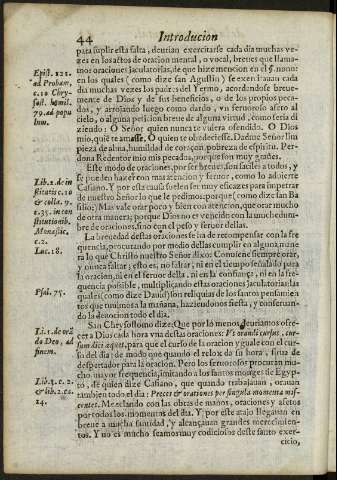 44 Introducion
para suplir esta falta, deurian exercitarse cada dia muchas ve-
zes en los actos de oracion mental, o vocal, breues que llama-
mos oraciones jaculatorias, de que hize mencion en el §. nono:
en los quales (como dize san Agustin) se exercitauan cada
dia muchas vezes los padres del Yermo, acordandose breue-
mente de Dios y de sus beneficios, o de los propios peca-
dos, y arrojando luego como dardo, vn feruoroso afeto al
cielo, o alguna peticion breue de alguna virtud, como seria di-
ziendo: O Señor quien nunca te vuiera ofendido. O Dios
mio, què te amasse. O quien te obedeciesse. Dadme Señor lim
pieza de alma, humildad de coraçon, pobreza de espiritu. Per-
dona Redentor mio mis pecados, porque son muy grandes.
Este modo de oraciones, por ser breue, son faciles a todos, y
se pueden hazer con mas atencion y feruor, como lo aduierte
Casiano. Y por esta causa suelen ser muy eficazes para impetrar
de nuestro Señor lo que le pedimos: porque (como dize san Ba
silio) Mas vale orar poco y bien con atencion, que orar mucho
de otra manera; porque Dios no es vencido con la muchedum-
bre de oraciones, sino con el peso y feruor dellas.
La breuedad destas oraciones se ha de recompensar con la fre
quencia, procurando por medio dellas cumplir en alguna mane
ra lo que Christo nuestro Señor dixo: Conuiene siempre orar,
y nunca faltar; esto es, no faltar, ni en el tiempo señalado para
la oracion, ni en el feruor della, ni en la confiança, ni en la fre-
quencia possible, multiplicando estas oraciones jaculatorias: las
quales (como dize Dauid) son reliquias de los santos pensamien
tos que tuuimos a la mañana, haziendonos fiesta, y conseruan-
do la deuocion todo el dia.
San Chrysostomo dize: Que por lo menos deuriamos ofre-
cer a Dios cada hora vna destas oraciones: Vt orandi cursus, cur-
sum diei æquet, para que el curso de la oracion yguale con el cur-
so del dia: de modo que quando el relox da su hora, sirua de
despertador para la oracion. Pero los feruorosos procuran mu-
cho mayor frequencia, imitando a los santos monges de Egyp-
to, de quien dize Casiano, que quando trabajauan, orauan
tambien todo el dia: Preces & orationes per singula momenta mis-
centes. Mezclando con las obras de manos, oraciones y afetos
por todos los momentos del dia. Y por este atajo llegauan en
breue a mucha santidad, y alcançauan grandes merecimien-
tos. Y no es mucho seamos muy codiciosos deste santo exer-
citio,
Epist. 121.
ad Probam,
c. 10 Chry-
sost. homil.
79. ad popu
lum.
Lib. 2. de in
stitutis c. 10
& colla. 9.
c. 35. in con
stitutionib.
Monastic.
c. 2.
Luc. 18.
Psal. 75.
Li. 1. de orã
do Deo, ad
finem.
Lib. 3. c. 2.
& lib. 2. ca.
14.